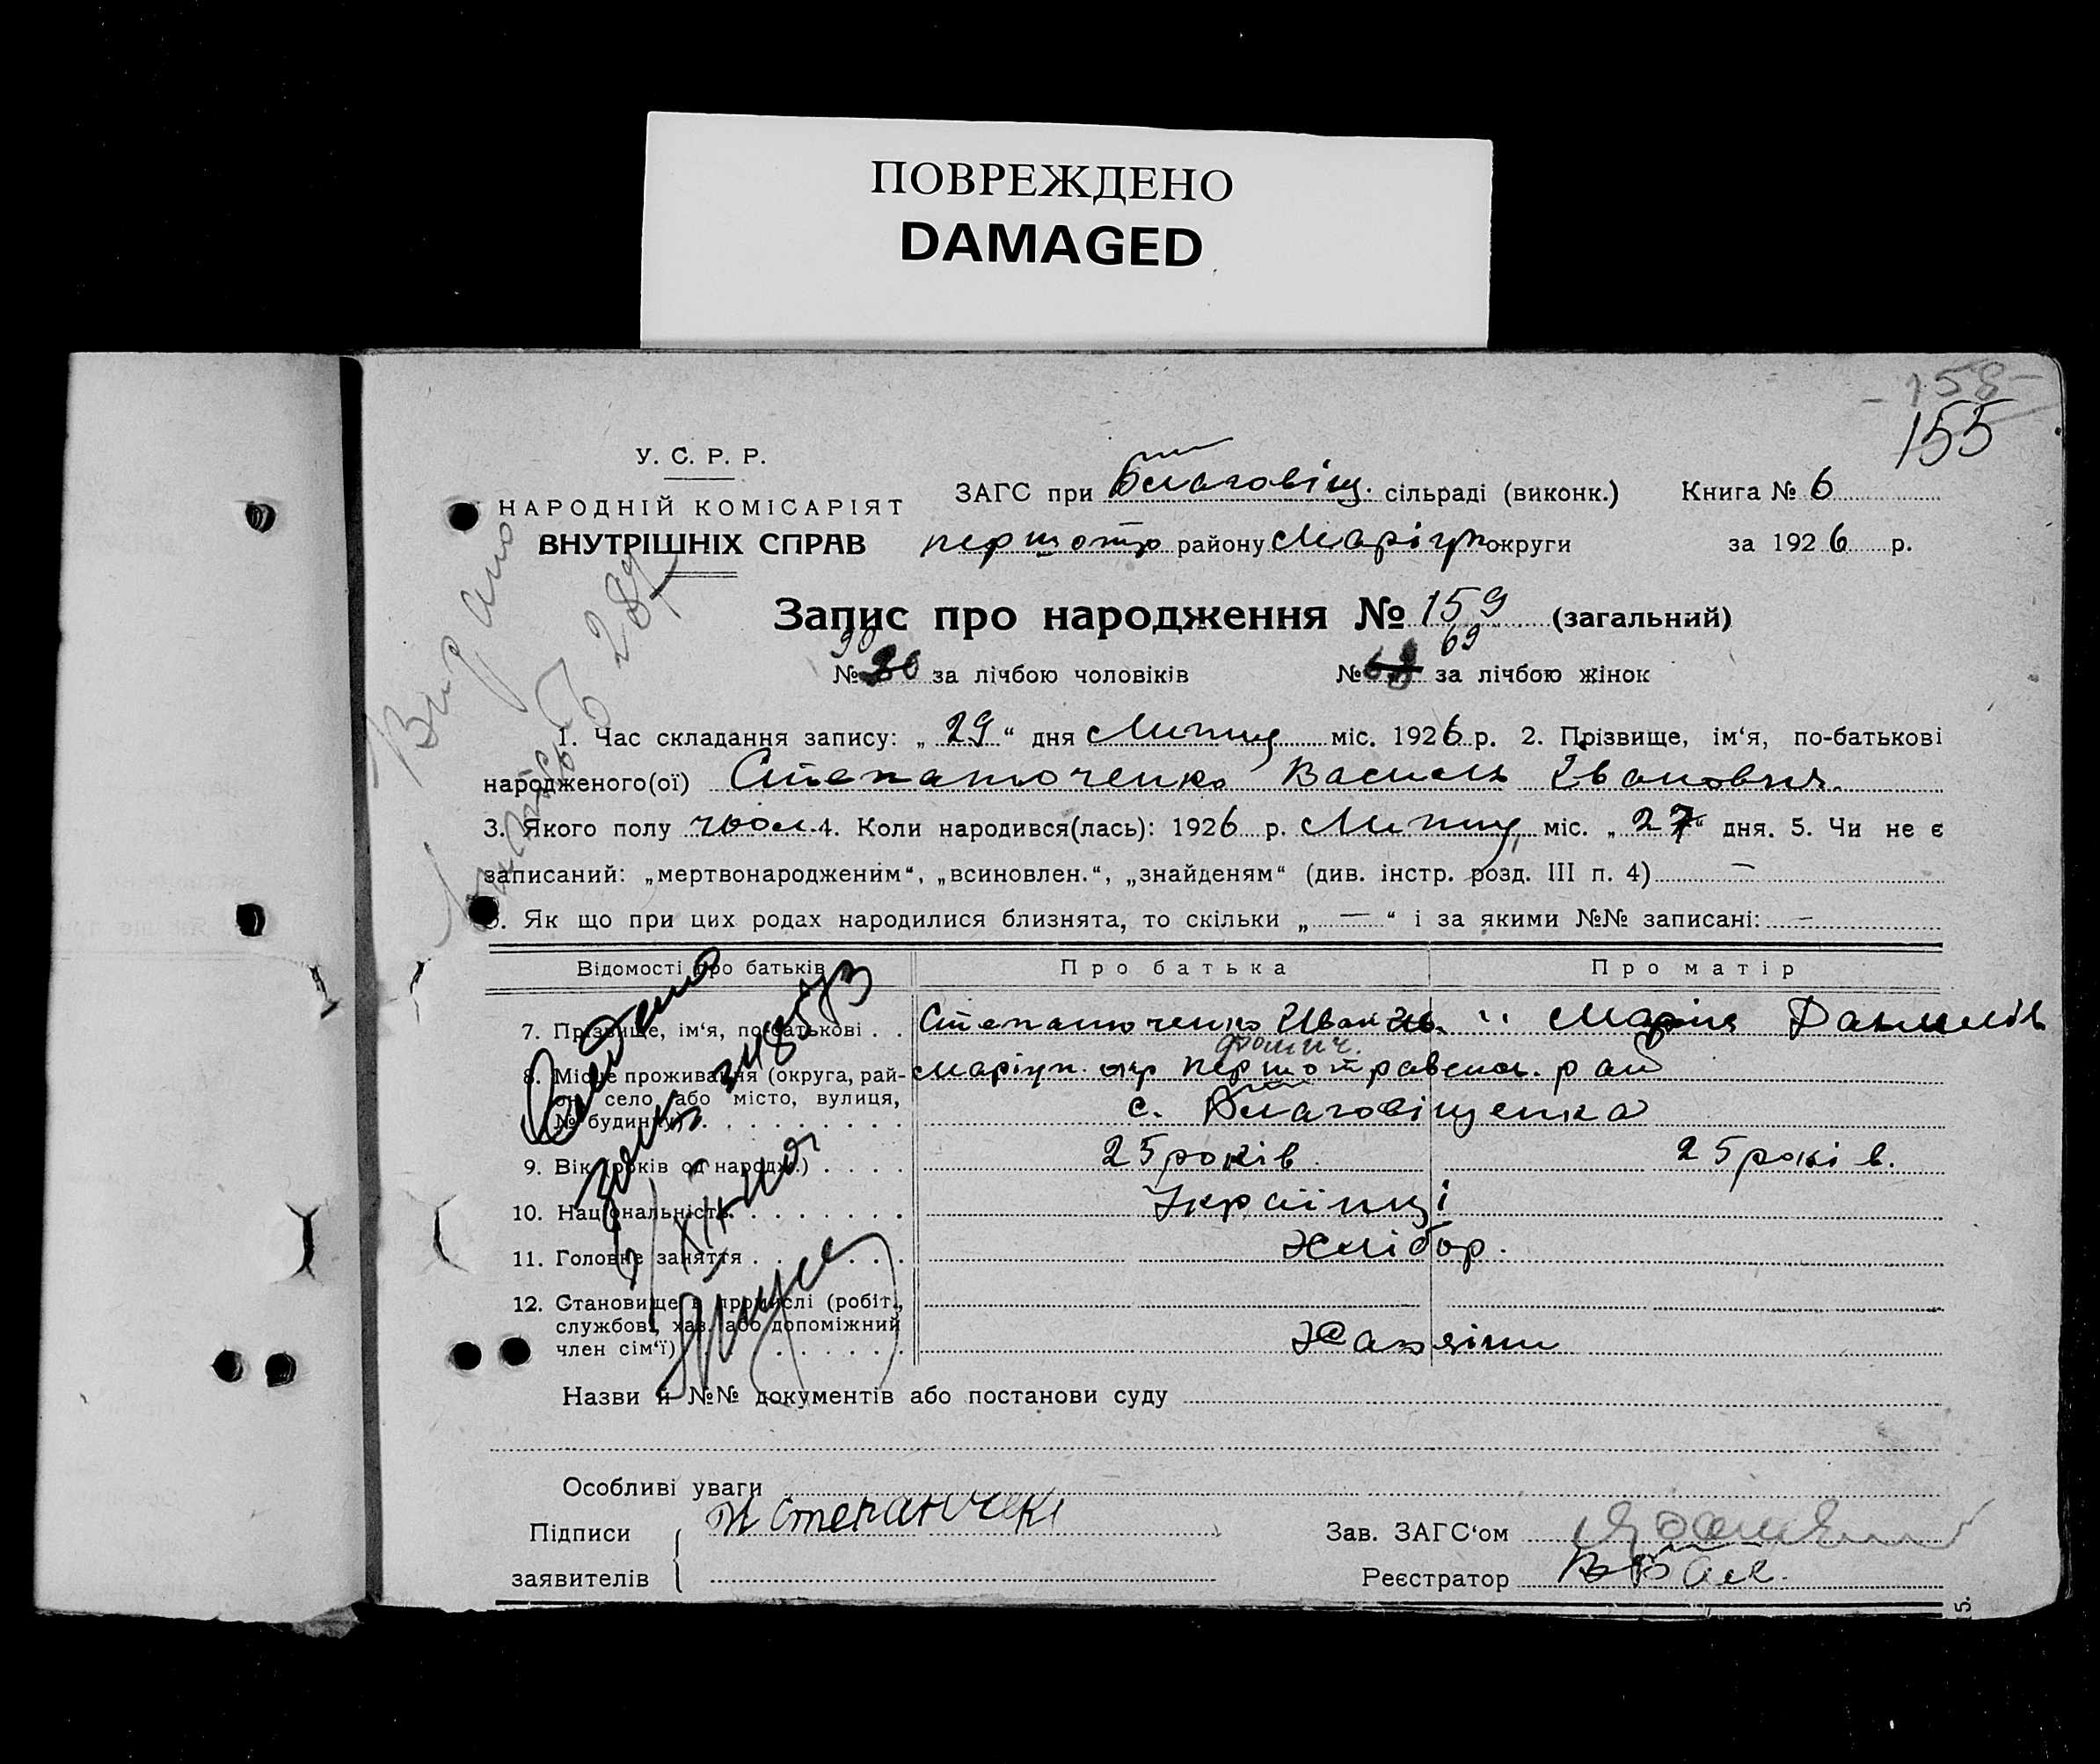 ПОВРЕЖДЕНО
DAMAGED
- 158 -
155
У. С. Р. Р.
НАРОДНІЙ КОМІСАРІЯТ
ВНУТРІШНІХ СПРАВ
ЗАГС при Благовіщ. сільраді (виконк.) Книга № 6
першотр району Маріуп округи за 1926 р.
Запис про народження № 159 (загальний)
90 69
№ за лічбою чоловіків № 68 за лічбою жінок
Видано
287
1. Час складання запису: „ 29 “ дня Липня міс. 1926 р. 2. Прізвище, ім‘я, по-батькові
народженого(ої) Степанюченко Василь Іванович.
3. Якого полу чол. 4. Коли народився(лась): 1926 р. Липня міс. „ 27 “ дня. 5. Чи не є
записаний: „мертвонародженим“, „всиновлен.“, „знайденям“ (див. інстр. розд. III п. 4) —
6. Як що при цих родах народилися близнята, то скільки „ — “ і за якими №№ записані: —
Відомості про батьків Про батька Про матір
7. Прізвище, ім‘я, по-батькові . . Степанюченко Иван Ив. " Марія Данилів
8. Місце проживання (округа, рай- Маріуп. окр Першотравенск. рай
он, село або місто, вулиця, с. Благовіщенка
№ будинку)
9. Вік (років од народж.) . . . . 25 років. 25 років.
10. Національність. . . . . . . . Українці
11. Головне заняття . . . . . . . Хлібор.
12. Становище в промислі (робіт.,
службов., хаз. або допоміжний
член сім‘ї) . . . . . . . . Хазяїни
Назви й №№ документів або постанови суду
Особливі уваги
Підписи
заявителів
Зав. ЗАГС‘ом
Реєстратор